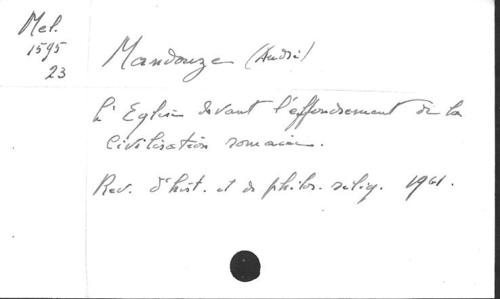 Mel.
1595
23
Mandouze (André)
L'Eglise devant l'effondrement de la
civilisation romaine.
Rev. d'hist. et de philos. relig. 1961.